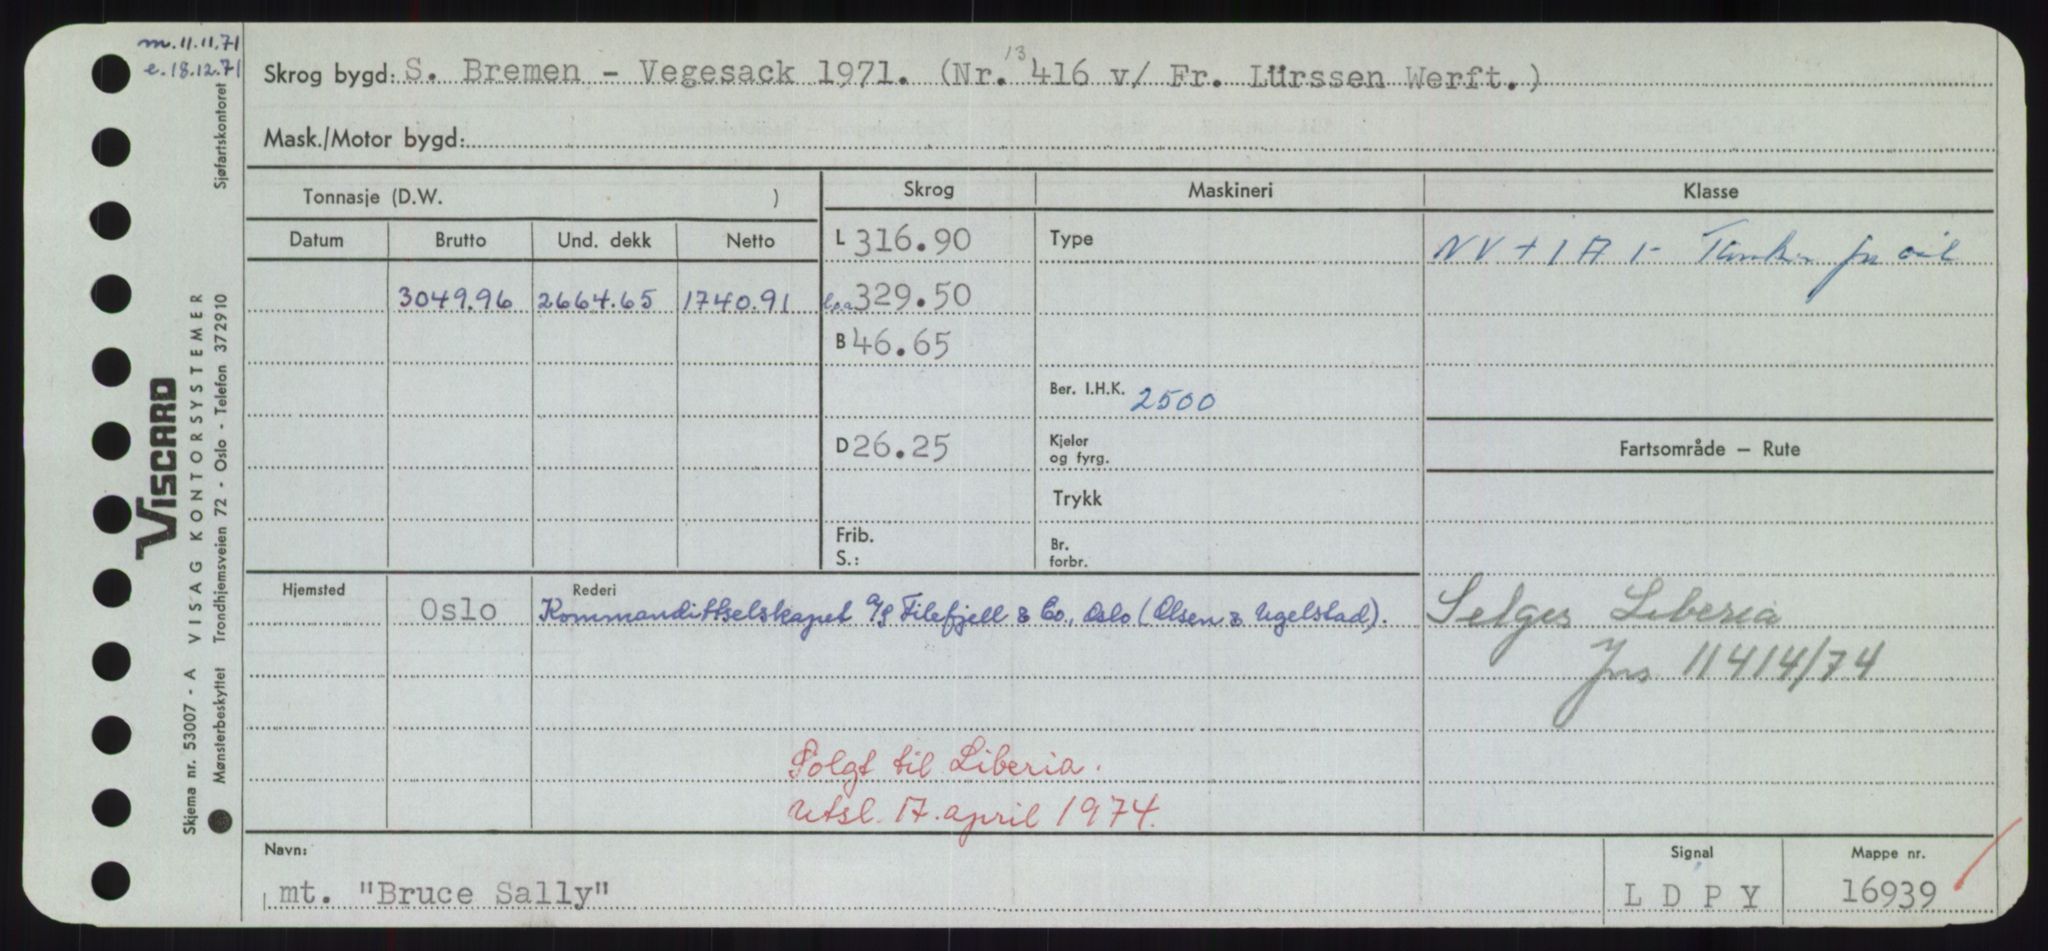 m. 11.11.71
e. 18.12.71
Skrog bygd: S. Bremen - Vegesack 1971. (Nr. 13416 v/ Fr. Lürssen Werft.)
Mask./Motor bygd:
Tonnasje (D.W. )
Skrog
Maskineri
Klasse
Datum Brutto Und. dekk Netto
L 316.90
Type
NV + 1 A 1 - for oil
3049.96 2664.65 1740.91
loa 329.50
B 46.65
Ber. I.H.K. 2500
Fartsområde — Rute
D 26.25
Kjeler
og fyrg.
Trykk
Frib.
S.:
Br.
forbr.
Hjemsted
Oslo
Rederi
Kommandittselskapet A/S Filefjell & Co., Oslo (Olsen & Ugelstad).
Selges Liberia
Jns 11414/74
Solgt til Liberia.
Utsl. 17. april 1974.
Navn:
mt. "Bruce Sally"
Signal
L D P Y
Mappe nr.
16939
VISCARD
Skjema nr. 53007 - A VISAG KONTORSYSTEMER
Mønsterbeskyttet Trondhjemsveien 72 - Oslo - Telefon 372910
Sjøfartskontoret